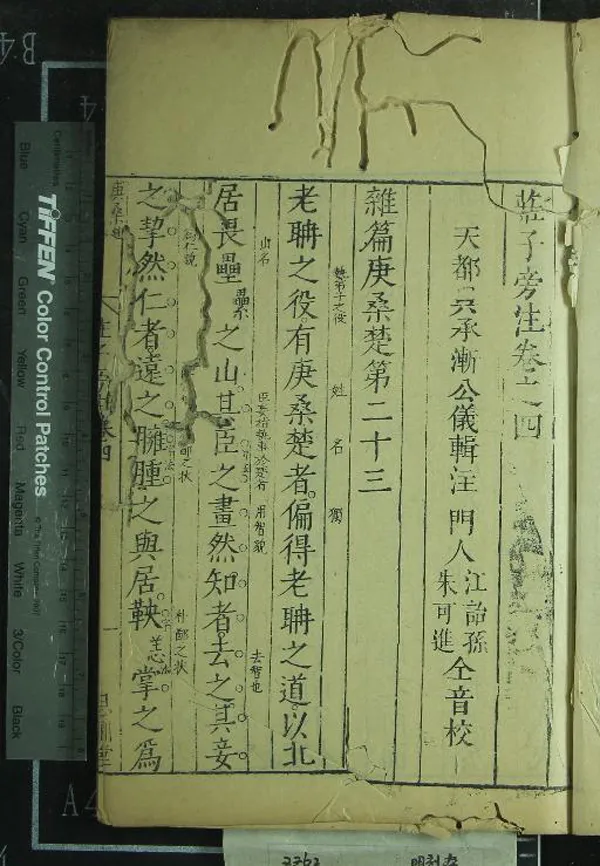 莊子旁注卷之四
天都吳承漸公儀輯注 門人 江詒孫 朱可進 仝音校
雜篇庚桑楚第二十三
姓名 獨
老聃之役。有庚桑楚者。偏得老聃之道。以北
山名 用智貌 去智也
居畏壘之山。其臣之畫然知者。去之。其妾
朴鄙之狀
之挈然仁者。遠之。臃腫之與居。鞅掌之爲
庚桑楚
TIFFEN Color Control Patches
Centimetres
Blue
Cyan
Green
Yellow
Red
Magenta
White
3/Color
Black
B4
A4